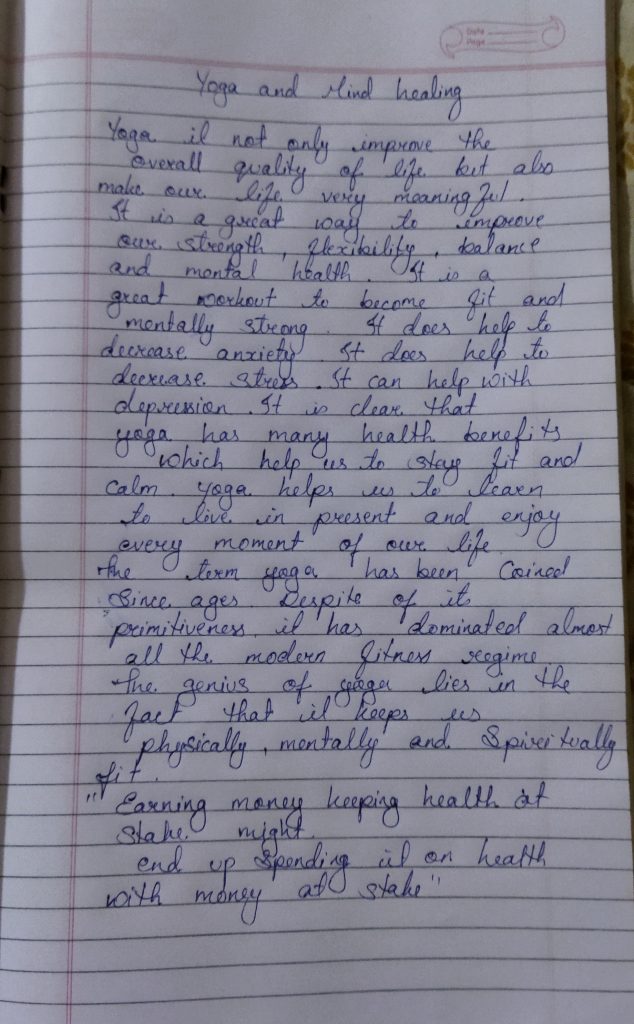 Date
Page
Yoga and Mind healing
Yoga it not only improve the
overall quality of life but also
make our life very meaningful.
It is a great way to improve
our strength, flexibility, balance
and mental health. It is a
great workout to become fit and
mentally strong. It does help to
decrease anxiety. It does help to
decrease stress. It can help with
depression. It is clear that
yoga has many health benefits
which help us to stay fit and
calm. Yoga helps us to learn
to live in present and enjoy
every moment of our life
The term yoga has been Coined
Since ages. Despite of its
primitiveness, it has dominated almost
all the modern fitness regime
The genius of yoga lies in the
fact that it keeps us
physically, mentally and Spiritually
fit.
"Earning money keeping health at
stake might
end up spending it on health
with money at stake"